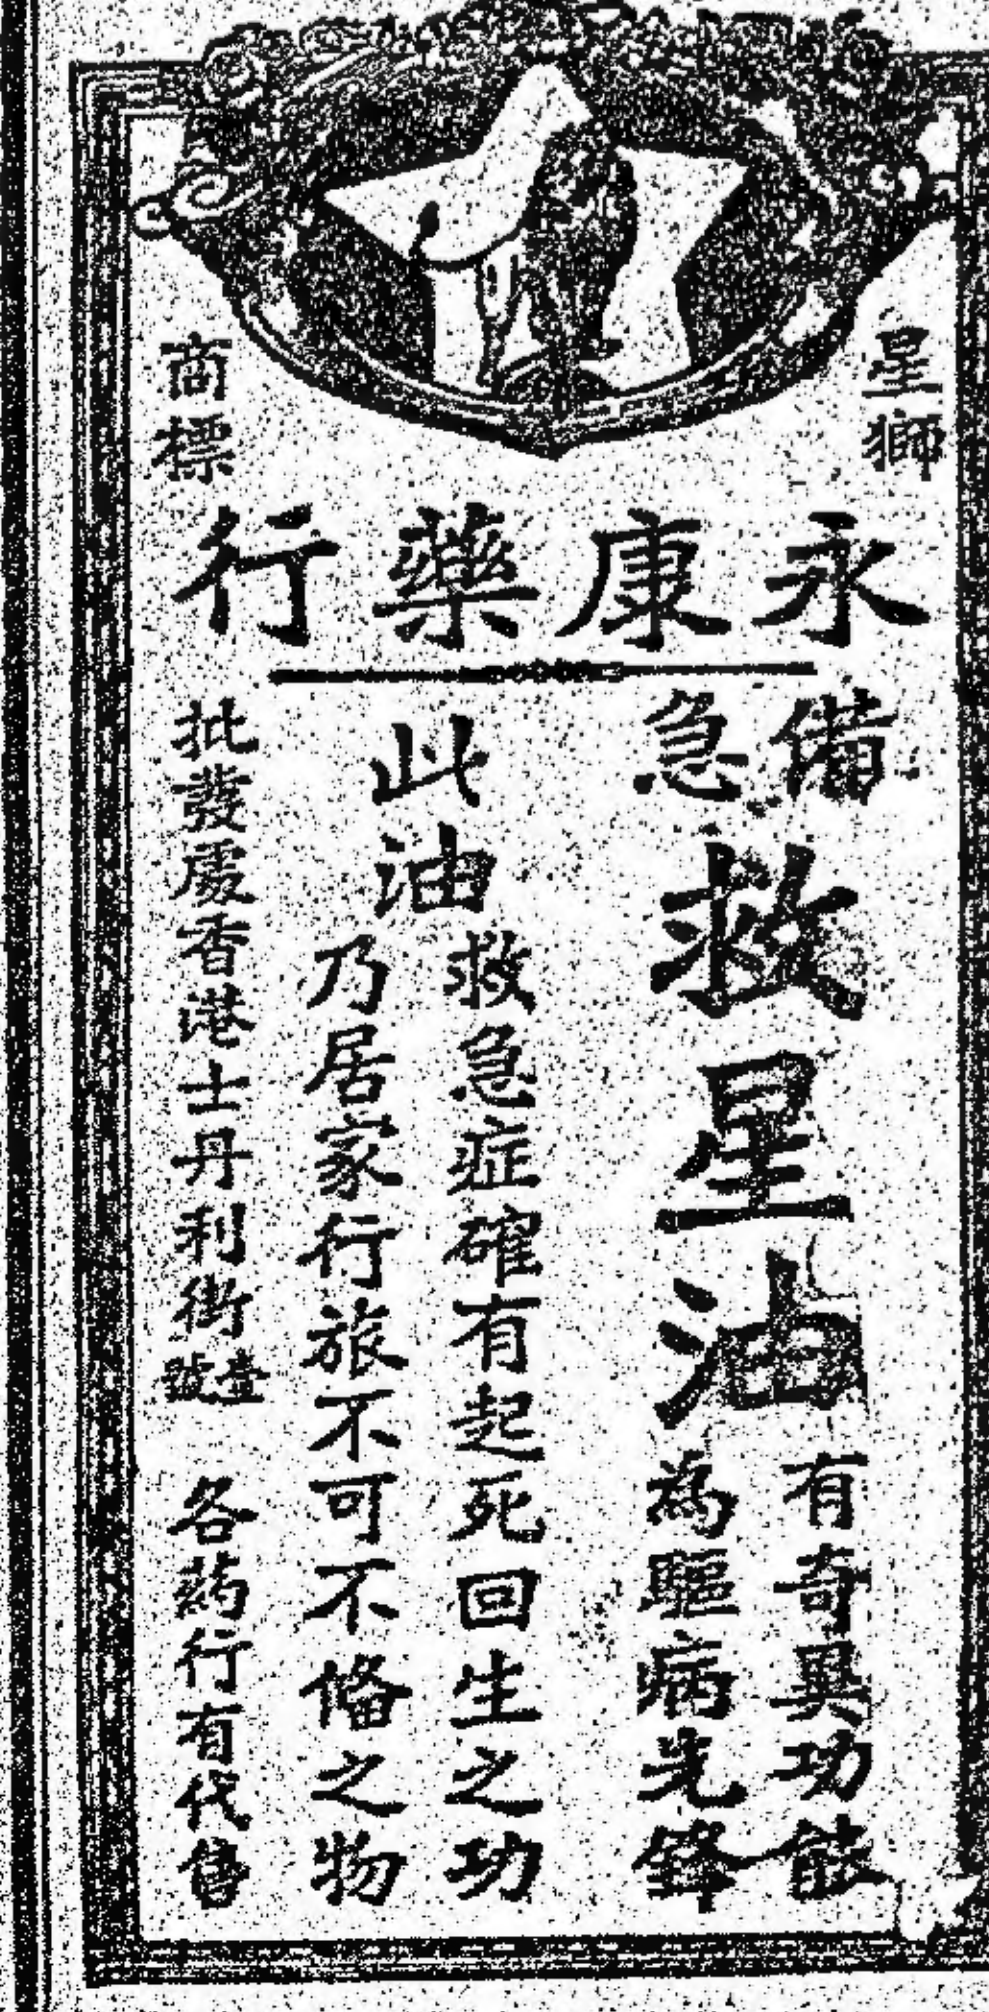 星獅
商標
永康藥行
備急
救星油
有奇異功能
為驅病先鋒
此油
救急症確有起死回生之功
乃居家行旅不可不俻之物
批發處香港士丹利街壹號
各药行有代售